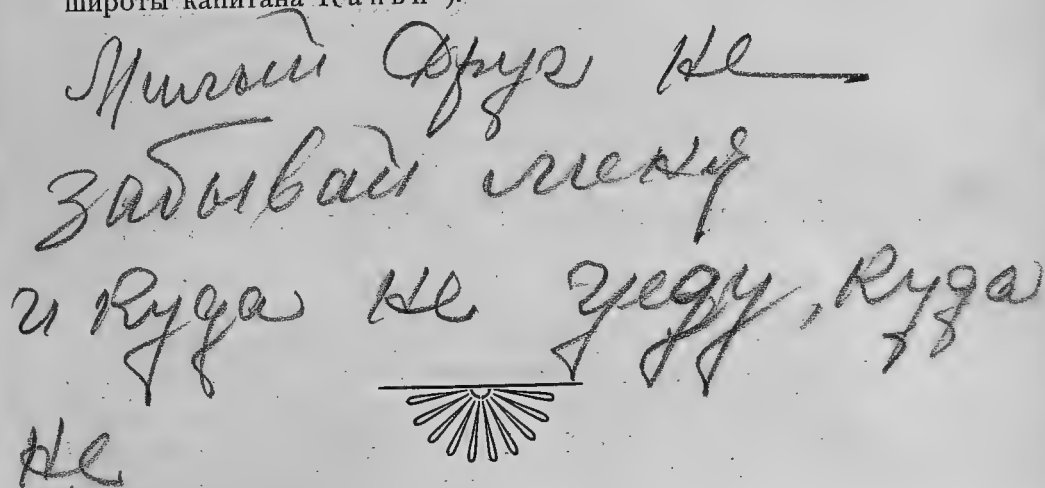 широты капитана
Милый друг не
забывай меня
и куда не уеду, куда
не